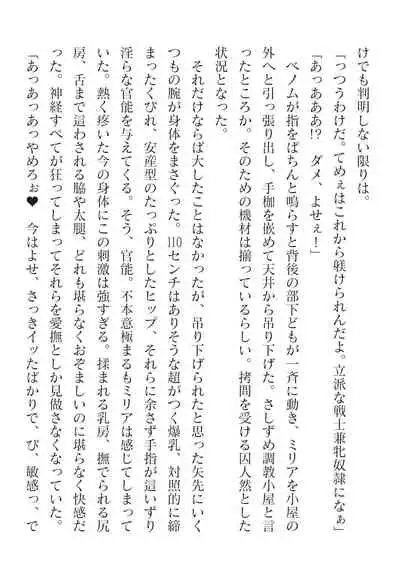 けでも判明しない限りは。
「っつうわけだ。てめぇはこれから躾けられんだよ。立派な戦士兼牝奴隷になぁ」
「あっあああ!?　ダメ、よせぇ！」
ベノムが指をぱちんと鳴らすと背後の部下どもが一斉に動き、ミリアを小屋の
外へと引っ張り出し、手枷を嵌めて天井から吊り下げた。さしずめ調教小屋と言
ったところか。そのための機材は揃っているらしい。拷問を受ける囚人然とした
状況となった。
それだけならば大したことはなかったが、吊り下げられたと思った矢先にいく
つもの腕が身体をまさぐった。110センチはありそうな超がつく爆乳、対照的に締
まったくびれ、安産型のたっぷりとしたヒップ、それらに余さず手指が這いずり
淫らな官能を与えてくる。そう、官能。不本意極まるもミリアは感じてしまって
いた。熱く疼いた今の身体にこの刺激は強すぎる。揉まれる乳房、撫でられる尻
房、舌まで這わされる脇や太腿、どれも堪らなくおぞましいのに堪らなく快感だ
った。神経すべてが狂ってしまってそれらを愛撫としか見做さなくなっていた。
「あっあっあっやめろぉ♥　今はよせ、さっきイッたばかりで、び、敏感っ、で